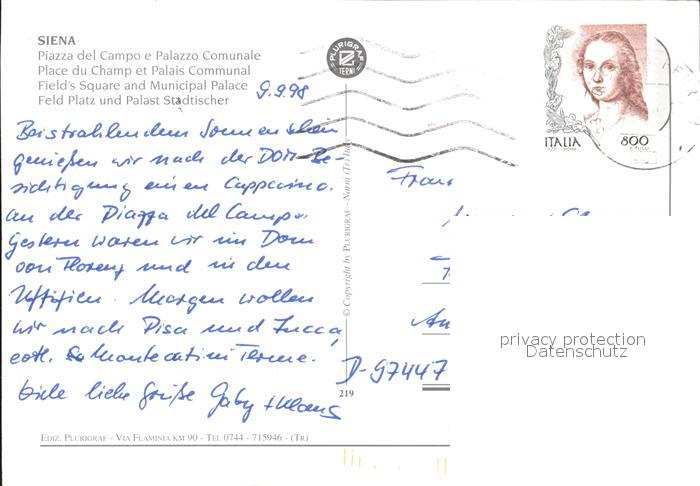 SIENA
Piazza del Campo e Palazzo Comunale
Place du Champ et Palais Communal
Field's Square and Municipal Palace
Feld Platz und Palast Städtischer
PLURIGRAF
TERNI
9.9.98
Bei strahlendem Sonnenschein
genießen wir nach der Dom Be-
sichtigung einen Cappucino
an der Piazza del Campo.
Gestern waren wir im Dom
von Florenz und in den
Uffizien. Morgen wollen
wir nach Pisa und Lucca,
evtl. Montecatini Terme.
Viele liebe Grüße Gaby + Klaus
© Copyright by PLURIGRAF - Narni (Tr) Italia
219
ITALIA
800
Frau
D-97447
privacy protection
Datenschutz
EDIZ. PLURIGRAF - VIA FLAMINIA KM 90 - TEL 0744 - 715946 - (TR)